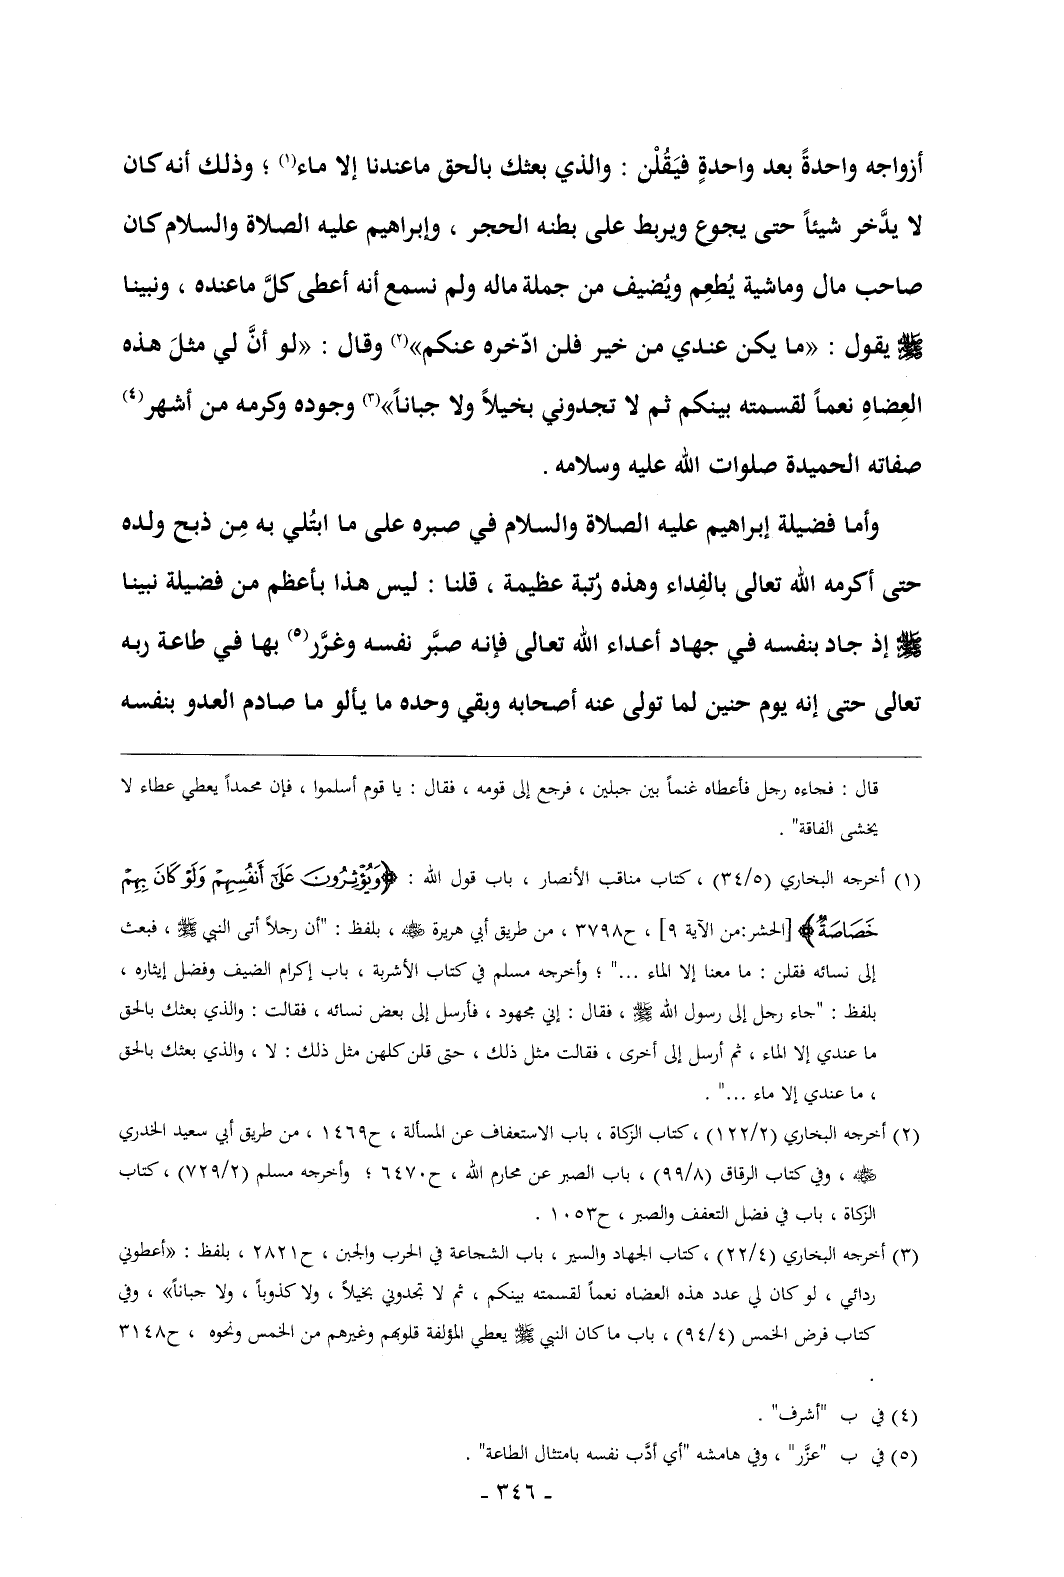 أزواجه واحدةً بعد واحدةٍ فيَقُلْن : والذي بعثك بالحق ماعندنا إلا ماء(١) ؛ وذلك أنه كان
لا يدَّخر شيئاً حتى يجوع ويربط على بطنه الحجر ، وإبراهيم عليه الصلاة والسلام كان
صاحب مال وماشية يُطعِم ويُضيف من جملة ماله ولم نسمع أنه أعطى كلَّ ماعنده ، ونبينا
ﷺ يقول : «ما يكن عندي من خير فلن ادّخره عنكم»(٢) وقال : «لو أنَّ لي مثلَ هذه
العِضاهِ نعماً لقسمته بينكم ثم لا تجدوني بخيلاً ولا جباناً»(٣) وجوده وكرمه من أشهر(٤)
صفاته الحميدة صلوات الله عليه وسلامه .
وأما فضيلة إبراهيم عليه الصلاة والسلام في صبره على ما ابتُلي به مِن ذبح ولده
حتى أكرمه الله تعالى بالفِداء وهذه رُتبة عظيمة ، قلنا : ليس هذا بأعظم من فضيلة نبينا
ﷺ إذ جاد بنفسه في جهاد أعداء الله تعالى فإنه صبَّر نفسه وغرَّر(٥) بها في طاعة ربه
تعالى حتى إنه يوم حنين لما تولى عنه أصحابه وبقي وحده ما يألو ما صادم العدو بنفسه
قال : فجاءه رجل فأعطاه غنماً بين جبلين ، فرجع إلى قومه ، فقال : يا قوم أسلموا ، فإن محمداً يعطي عطاء لا
يخشى الفاقة" .
(١) أخرجه البخاري (٣٤/٥) ، كتاب مناقب الأنصار ، باب قول الله : ﴿وَيُؤْثِرُونَ عَلَىٰ أَنفُسِهِمْ وَلَوْ كَانَ بِهِمْ
خَصَاصَةٌ﴾ [الحشر:من الآية ٩] ، ح٣٧٩٨ ، من طريق أبي هريرة ﷺ ، بلفظ : "أن رجلاً أتى النبي ﷺ ، فبعث
إلى نسائه فقلن : ما معنا إلا الماء ..." ؛ وأخرجه مسلم في كتاب الأشربة ، باب إكرام الضيف وفضل إيثاره ،
بلفظ : "جاء رجل إلى رسول الله ﷺ ، فقال : إني مجهود ، فأرسل إلى بعض نسائه ، فقالت : والذي بعثك بالحق
ما عندي إلا الماء ، ثم أرسل إلى أخرى ، فقالت مثل ذلك ، حتى قلن كلهن مثل ذلك : لا ، والذي بعثك بالحق
، ما عندي إلا ماء ..." .
(٢) أخرجه البخاري (١٢٢/٢) ، كتاب الزكاة ، باب الاستعفاف عن المسألة ، ح١٤٦٩ ، من طريق أبي سعيد الخدري
رضي الله عنه ، وفي كتاب الرقاق (٩٩/٨) ، باب الصبر عن محارم الله ، ح٦٤٧٠ ؛ وأخرجه مسلم (٧٢٩/٢) ، كتاب
الزكاة ، باب في فضل التعفف والصبر ، ح١٠٥٣ .
(٣) أخرجه البخاري (٢٢/٤) ، كتاب الجهاد والسير ، باب الشجاعة في الحرب والجبن ، ح٢٨٢١ ، بلفظ : «أعطوني
ردائي ، لو كان لي عدد هذه العضاه نعماً لقسمته بينكم ، ثم لا تجدوني بخيلاً ، ولا كذوباً ، ولا جباناً» ، وفي
كتاب فرض الخمس (٩٤/٤) ، باب ما كان النبي ﷺ يعطي المؤلفة قلوبهم وغيرهم من الخمس ونحوه ، ح٣١٤٨
.
(٤) في ب "أشرف" .
(٥) في ب "عزَّر" ، وفي هامشه "أي أدَّب نفسه بامتثال الطاعة" .
- ٣٤٦ -